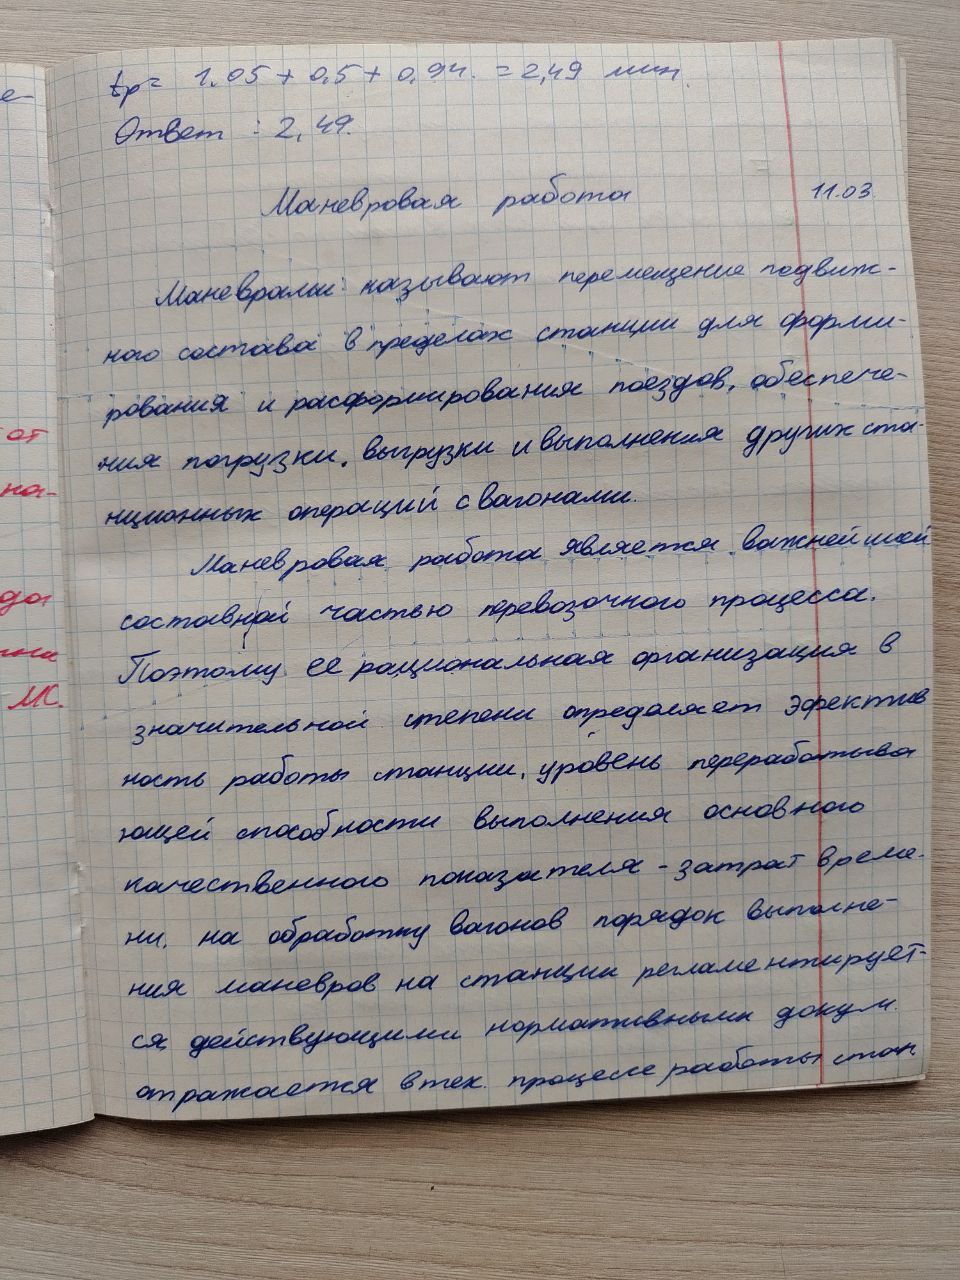 tр= 1.05 + 0,5 + 0,94. = 2,49 мин.
Ответ : 2,49.
Маневровая работа 11.03
Маневрами называют перемещение подвиж-
ного состава в пределах станции для форми-
рования и расформирования поездов, обеспече-
ния погрузки, выгрузки и выполнения других ста-
нционных операций с вагонами.
Маневровая работа является важнейшей
составной частью перевозочного процесса.
Поэтому ее рациональная организация в
значительной степени определяет эфектив
ность работы станции, уровень перерабатыва
ющей способности выполнения основного
качественного показателя - затрат време-
ни, на обработку вагонов порядок выполне-
ния маневров на станции регламентирует-
ся действующими нормативными докум.
отражается в тех. процессе работы стан
е-
от
на-
МС.